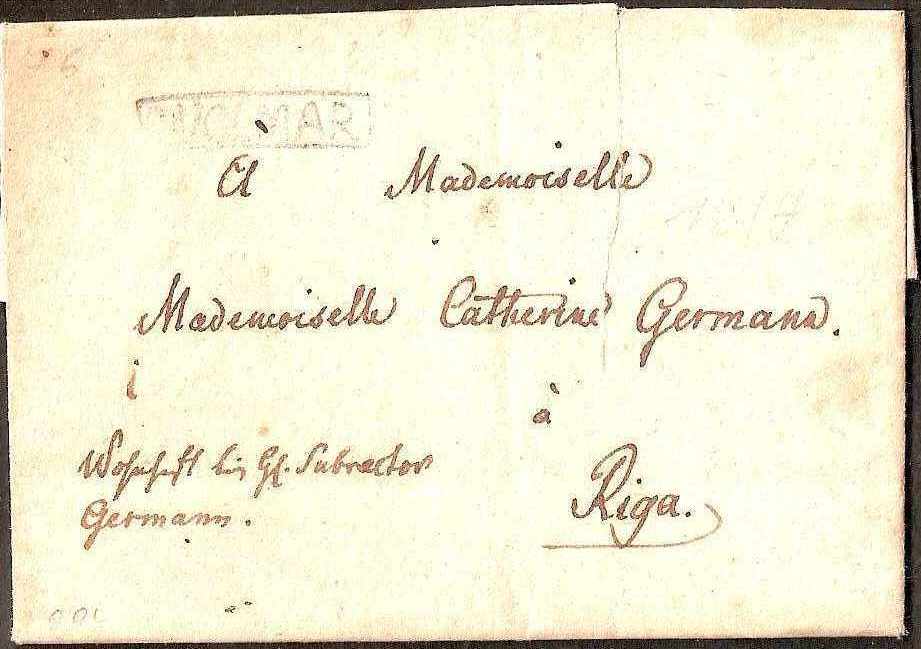 À Mademoiselle
Mademoiselle Catherine Germann.
à
Riga.
Wohnhaft bei H. Subrector
Germann.